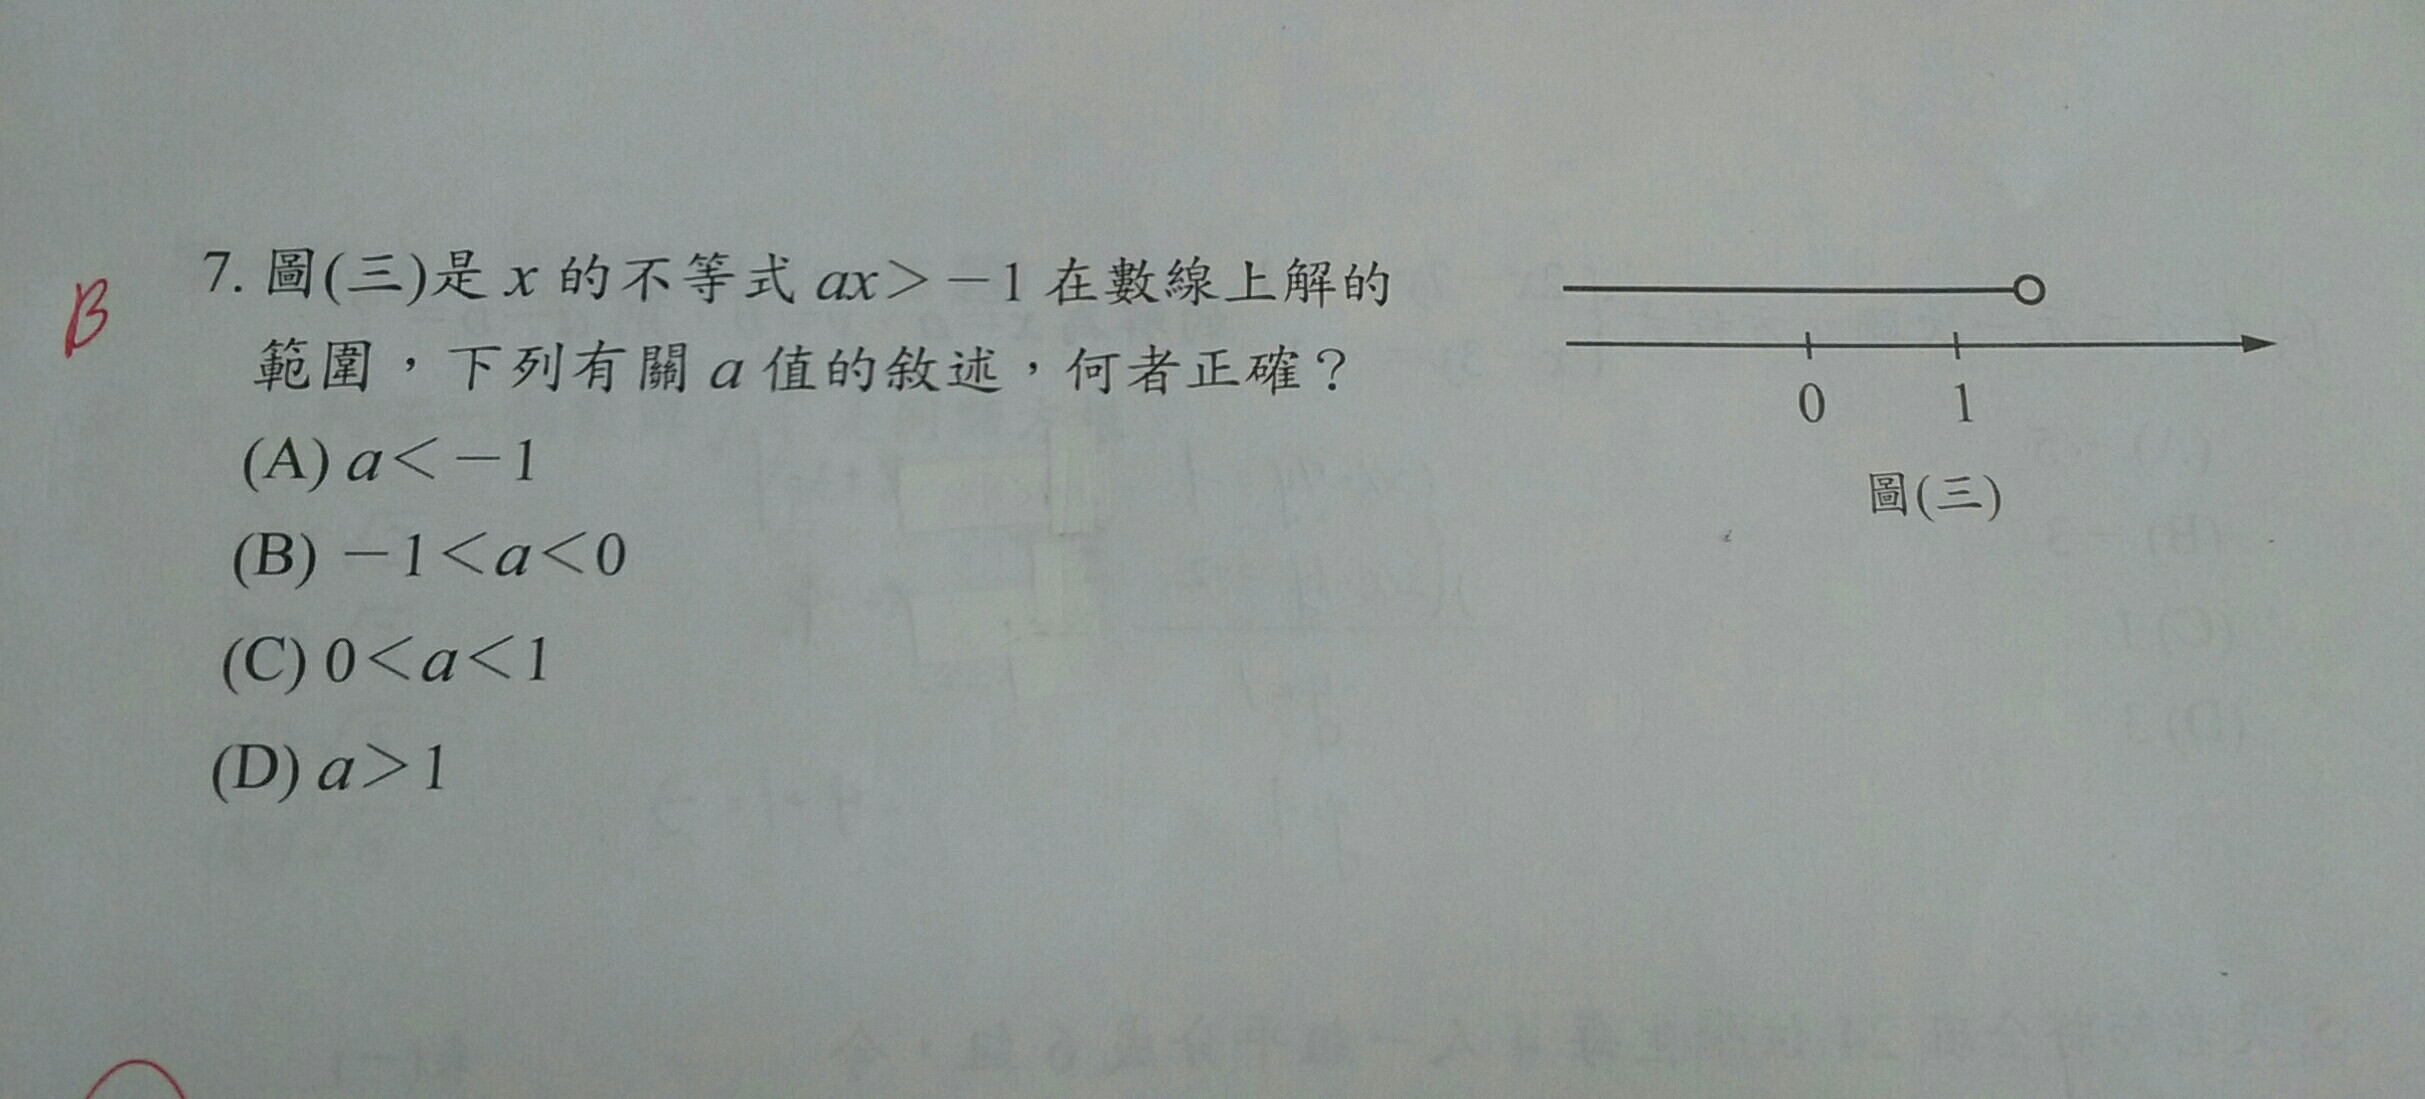 B
7. 圖(三)是 x 的不等式 ax＞－1 在數線上解的
範圍，下列有關 a 值的敘述，何者正確？
(A) a＜－1
(B) －1＜a＜0
(C) 0＜a＜1
(D) a＞1
0 1
圖(三)